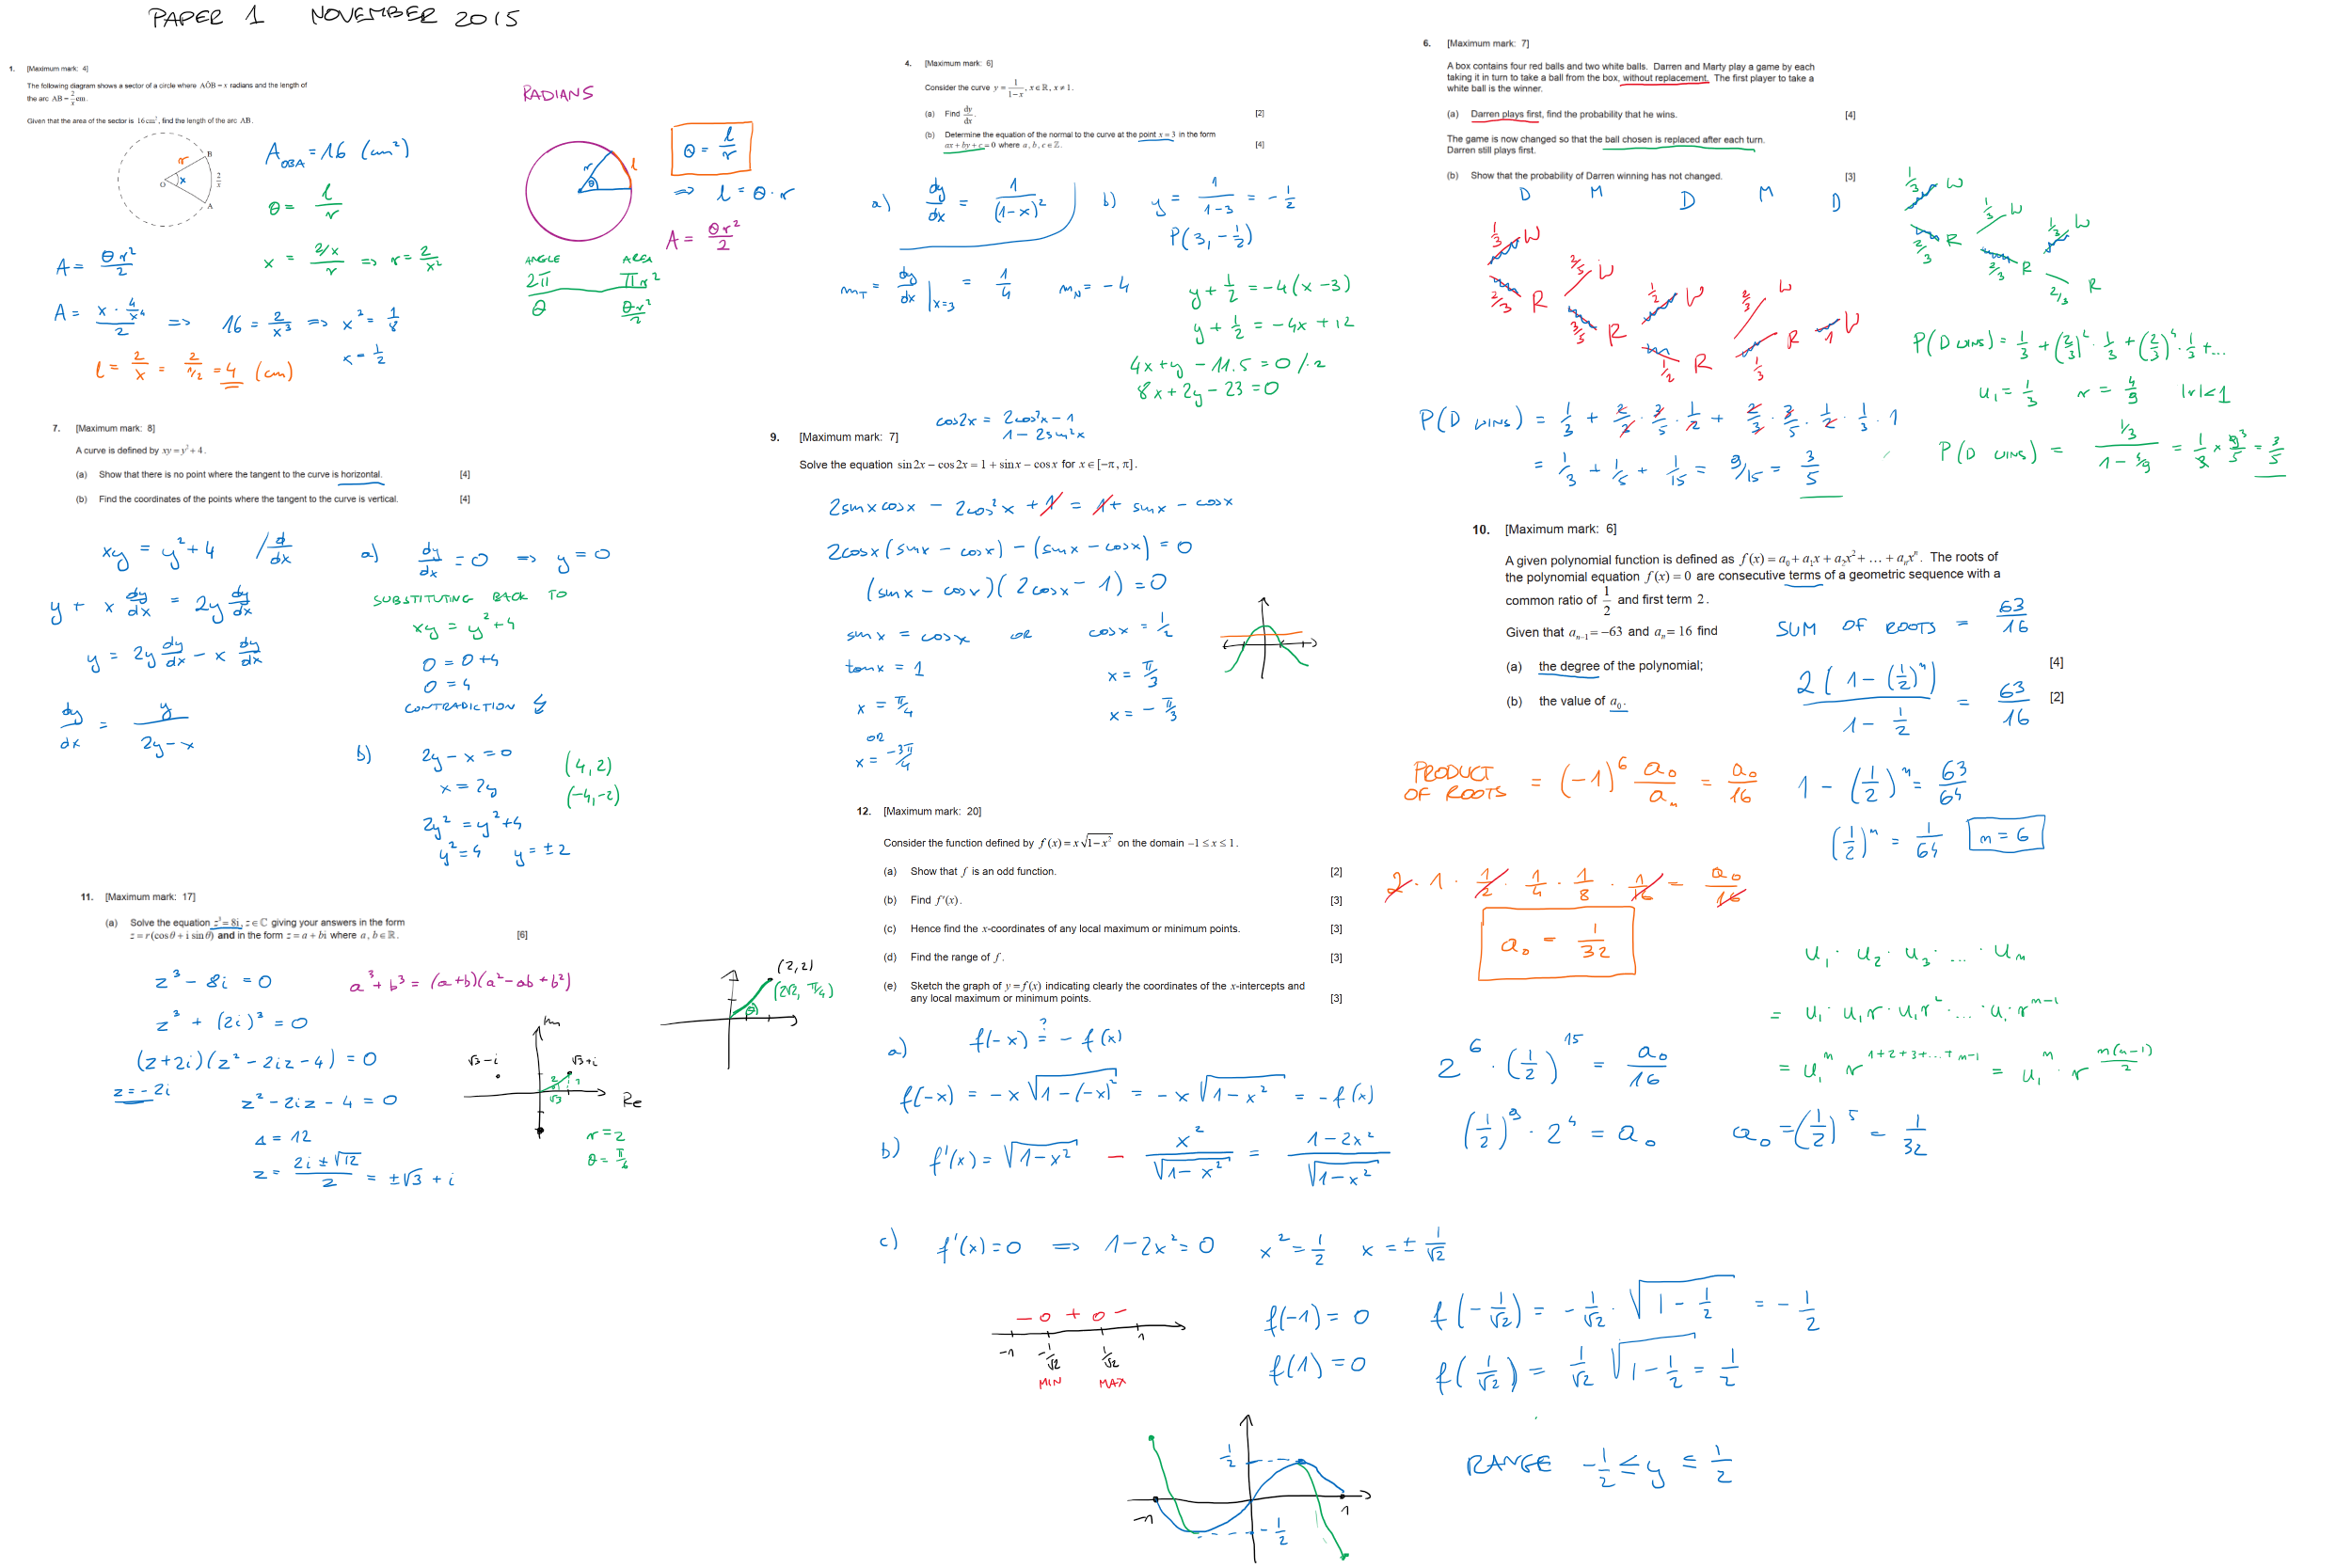 PAPER 1 NOVEMBER 2015
1. [Maximum mark: 4]
The following diagram shows a sector of a circle where AÔB = x radians and the length of
the arc AB = 2/x cm.
Given that the area of the sector is 16 cm², find the length of the arc AB.
r
B
O
x
2/x
A
A_OBA = 16 (cm²)
θ = l/r
x = (2/x)/r ⇒ r = 2/x²
A = θr²/2
A = (x · 4/x⁴)/2 ⇒ 16 = 2/x³ ⇒ x² = 1/8
x = 1/2
l = 2/x = 2/(1/2) = 4 (cm)
RADIANS
r
θ
l
θ = l/r
⇒ l = θ · r
A = θr²/2
ANGLE AREA
2π πr²
θ θr²/2
4. [Maximum mark: 6]
Consider the curve y = 1/(1−x), x ∈ ℝ, x ≠ 1.
(a) Find dy/dx. [2]
(b) Determine the equation of the normal to the curve at the point x = 3 in the form
ax + by + c = 0 where a, b, c ∈ ℤ. [4]
a) dy/dx = 1/(1−x)²
b) y = 1/(1−3) = −1/2
P(3, −1/2)
m_T = dy/dx |x=3 = 1/4 m_N = −4
y + 1/2 = −4(x − 3)
y + 1/2 = −4x + 12
4x + y − 11.5 = 0 /·2
8x + 2y − 23 = 0
6. [Maximum mark: 7]
A box contains four red balls and two white balls. Darren and Marty play a game by each
taking it in turn to take a ball from the box, without replacement. The first player to take a
white ball is the winner.
(a) Darren plays first, find the probability that he wins. [4]
The game is now changed so that the ball chosen is replaced after each turn.
Darren still plays first.
(b) Show that the probability of Darren winning has not changed. [3]
D M D M D
1/3 W
2/3 R
2/5 W
3/5 R
1/2 W
1/2 R
2/3 W
1/3 R
1 W
P(D WINS) = 1/3 + 2/3 · 3/5 · 1/2 + 2/3 · 3/5 · 1/2 · 1/3 · 1
= 1/3 + 1/5 + 1/15 = 9/15 = 3/5
1/3 W
2/3 R
1/3 W
2/3 R
1/3 W
2/3 R
P(D WINS) = 1/3 + (2/3)² · 1/3 + (2/3)⁴ · 1/3 + ...
u₁ = 1/3 r = 4/9 |r| < 1
P(D WINS) = (1/3)/(1 − 4/9) = 1/3 × 9/5 = 3/5
7. [Maximum mark: 8]
A curve is defined by xy = y² + 4.
(a) Show that there is no point where the tangent to the curve is horizontal. [4]
(b) Find the coordinates of the points where the tangent to the curve is vertical. [4]
xy = y² + 4 / d/dx
y + x dy/dx = 2y dy/dx
y = 2y dy/dx − x dy/dx
dy/dx = y/(2y − x)
a) dy/dx = 0 ⇒ y = 0
SUBSTITUTING BACK TO
xy = y² + 4
0 = 0 + 4
0 = 4
CONTRADICTION
b) 2y − x = 0
x = 2y
2y² = y² + 4
y² = 4 y = ±2
(4, 2)
(−4, −2)
cos2x = 2cos²x − 1
1 − 2sin²x
9. [Maximum mark: 7]
Solve the equation sin 2x − cos 2x = 1 + sin x − cos x for x ∈ [−π, π].
2sinxcosx − 2cos²x + 1 = 1 + sinx − cosx
2cosx(sinx − cosx) − (sinx − cosx) = 0
(sinx − cosx)(2cosx − 1) = 0
sinx = cosx OR cosx = 1/2
tanx = 1 x = π/3
x = π/4 x = −π/3
OR
x = −3π/4
10. [Maximum mark: 6]
A given polynomial function is defined as f(x) = a₀ + a₁x + a₂x² + ... + aₙxⁿ. The roots of
the polynomial equation f(x) = 0 are consecutive terms of a geometric sequence with a
common ratio of 1/2 and first term 2.
Given that aₙ₋₁ = −63 and aₙ = 16 find
(a) the degree of the polynomial; [4]
(b) the value of a₀. [2]
SUM OF ROOTS = 63/16
2(1 − (1/2)ⁿ)/(1 − 1/2) = 63/16
1 − (1/2)ⁿ = 63/64
(1/2)ⁿ = 1/64 n = 6
PRODUCT OF ROOTS = (−1)⁶ a₀/aₙ = a₀/16
2 · 1 · 1/2 · 1/4 · 1/8 · 1/16 = a₀/16
a₀ = 1/32
u₁ · u₂ · u₃ · ... · uₙ
= u₁ · u₁r · u₁r² · ... · u₁ · rⁿ⁻¹
= u₁ⁿ r^(1+2+3+...+n−1) = u₁ⁿ · r^(n(n−1)/2)
2⁶ · (1/2)¹⁵ = a₀/16
(1/2)⁹ · 2⁴ = a₀ a₀ = (1/2)⁵ = 1/32
11. [Maximum mark: 17]
(a) Solve the equation z³ = 8i, z ∈ ℂ giving your answers in the form
z = r(cos θ + i sin θ) and in the form z = a + bi where a, b ∈ ℝ. [6]
z³ − 8i = 0
a³ + b³ = (a + b)(a² − ab + b²)
z³ + (2i)³ = 0
(z + 2i)(z² − 2iz − 4) = 0
z = −2i
z² − 2iz − 4 = 0
Δ = 12
z = (2i ± √12)/2 = ±√3 + i
Im
√3 − i
√3 + i
2
1
√3
Re
r = 2
θ = π/6
(2, 2)
(2√2, π/4)
θ
12. [Maximum mark: 20]
Consider the function defined by f(x) = x√(1−x²) on the domain −1 ≤ x ≤ 1.
(a) Show that f is an odd function. [2]
(b) Find f′(x). [3]
(c) Hence find the x-coordinates of any local maximum or minimum points. [3]
(d) Find the range of f. [3]
(e) Sketch the graph of y = f(x) indicating clearly the coordinates of the x-intercepts and
any local maximum or minimum points. [3]
a) f(−x) ≟ −f(x)
f(−x) = −x√(1−(−x)²) = −x√(1−x²) = −f(x)
b) f′(x) = √(1−x²) − x²/√(1−x²) = (1−2x²)/√(1−x²)
c) f′(x) = 0 ⇒ 1 − 2x² = 0 x² = 1/2 x = ±1/√2
− 0 + 0 −
−1 −1/√2 1/√2 1
MIN MAX
f(−1) = 0 f(−1/√2) = −1/√2 · √(1 − 1/2) = −1/2
f(1) = 0 f(1/√2) = 1/√2 √(1 − 1/2) = 1/2
1/2
−1
1
−1/2
RANGE −1/2 ≤ y ≤ 1/2